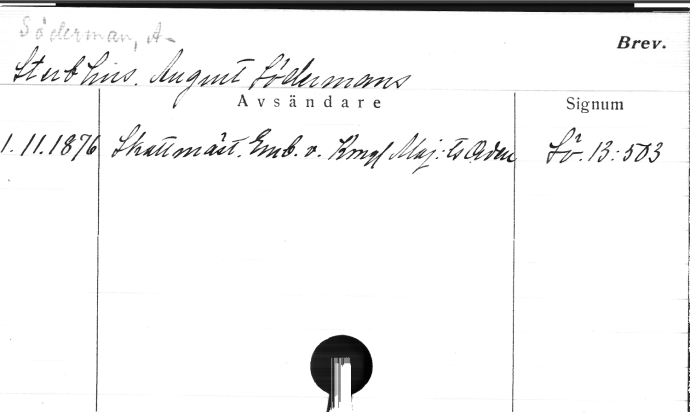 Söderman, A-
Brev.
Sterbhus. August Södermans
Avsändare
Signum
1.11.1876 Skattmäst. Emb. v. Kongl Maj:ts Orden Sö. 13:503